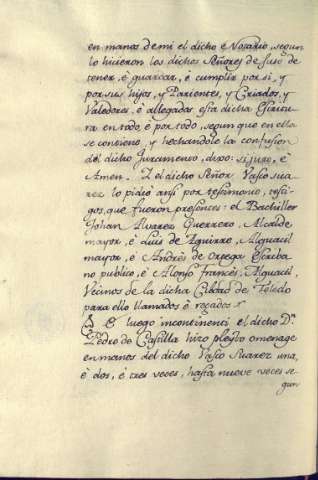 en manos de mi el dicho Notario, segun
lo hicieron los dichos Señores de suso de
tener, è guardar, è cumplir por si, y
por sus hijos, y Parientes, y Criados, y
Valedores, è allegados esta dicha Escritu-
ra en todo, è por todo, segun que en ella
se contiene, y hechandole la confusion
del dicho Juramento, dixo: si juro, è
Amen. Z el dicho Señor Vasco Sua-
rez lo pidio ansi por testimonio, testi-
gos, que fueron presentes: el Bachiller
Johan Alvarez Guerrero, Alcalde
mayor, è Luis de Aguirre, Alguacil
mayor, è Andrès de Ortega Escriba-
no publico, è Alonso francès, Alguacil,
Vecinos de la dicha Cibdad de Toledo
para ello llamados è rogados
E luego incontinenti el dicho Dn.
Pedro de Castilla hizo pleyto omenage
en manos del dicho Vasco Suarez una,
è dos, è tres veces, hasta nueve veces se-
gun